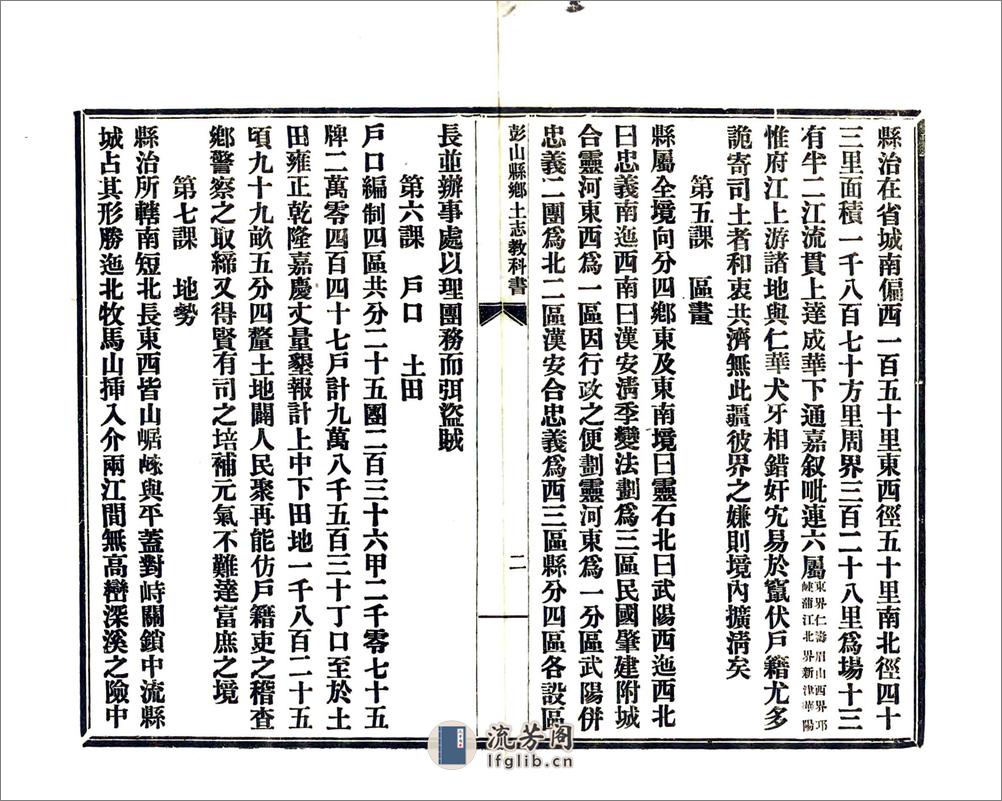 縣治在省城南偏西一百五十里東西徑五十里南北徑四十
三里面積一千八百七十方里周界三百二十八里爲場十三
有半二江流貫上達成華下通嘉叙毗連六屬東界仁壽眉山西界邛崍蒲江北界新津華陽
惟府江上游諸地與仁華犬牙相錯奸宄易於竄伏戶籍尤多
詭寄司土者和衷共濟無此疆彼界之嫌則境內擴淸矣
第五課 區畫
縣屬全境向分四鄉東及東南境曰靈石北曰武陽西迤西北
曰忠義南迤西南曰漢安淸季變法劃爲三區民國肇建附城
合靈河東西爲一區因行政之便劃靈河東爲一分區武陽併
忠義二團爲北二區漢安合忠義爲西三區縣分四區各設區
彭山縣鄉土志教科書
二
長並辦事處以理團務而弭盜賊
第六課 戶口 土田
戶口編制四區共分二十五團二百三十六甲二千零七十五
牌二萬零四百四十七戶計九萬八千五百三十丁口至於土
田雍正乾隆嘉慶丈量墾報計上中下田地一千八百二十五
頃九十九畝五分四釐土地闢人民聚再能仿戶籍吏之稽查
鄉警察之取締又得賢有司之培補元氣不難達富庶之境
第七課 地勢
縣治所轄南短北長東西皆山崌崍與平蓋對峙關鎖中流縣
城占其形勝迤北牧馬山揷入介兩江間無高巒深溪之險中
流芳阁
lfglib.cn